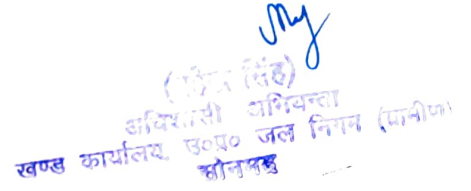 सिंह)
अधिशासी अभियन्ता
खण्ड कार्यालय, उ०प्र० जल निगम (ग्रामीण)
सोनभद्र